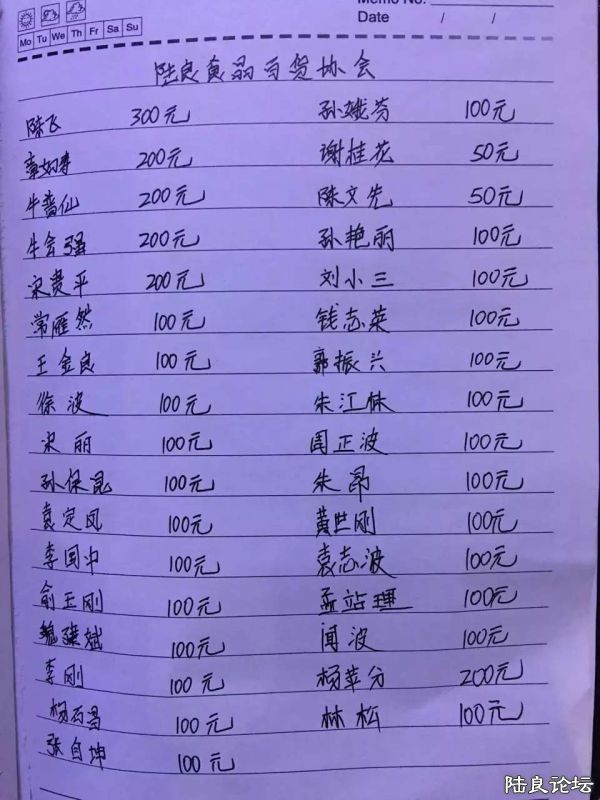 Memo No.
Date / /
Mo Tu We Th Fr Sa Su
陆良食品百货协会
陈飞 300元 孙娥芬 100元
200元 谢桂花 50元
牛普仙 200元 陈文先 50元
牛会强 200元 孙艳丽 100元
宋贵平 200元 刘小三 100元
常雁然 100元 钱志菜 100元
王金良 100元 郭振兴 100元
徐波 100元 朱江林 100元
宋丽 100元 闻正波 100元
孙保昆 100元 朱昂 100元
袁定凤 100元 黄世刚 100元
李国中 100元 袁志波 100元
俞王刚 100元 孟站理 100元
魏斌 100元 闻波 100元
李刚 100元 杨苹分 200元
杨石昌 100元 林松 100元
张自坤 100元
陆良论坛